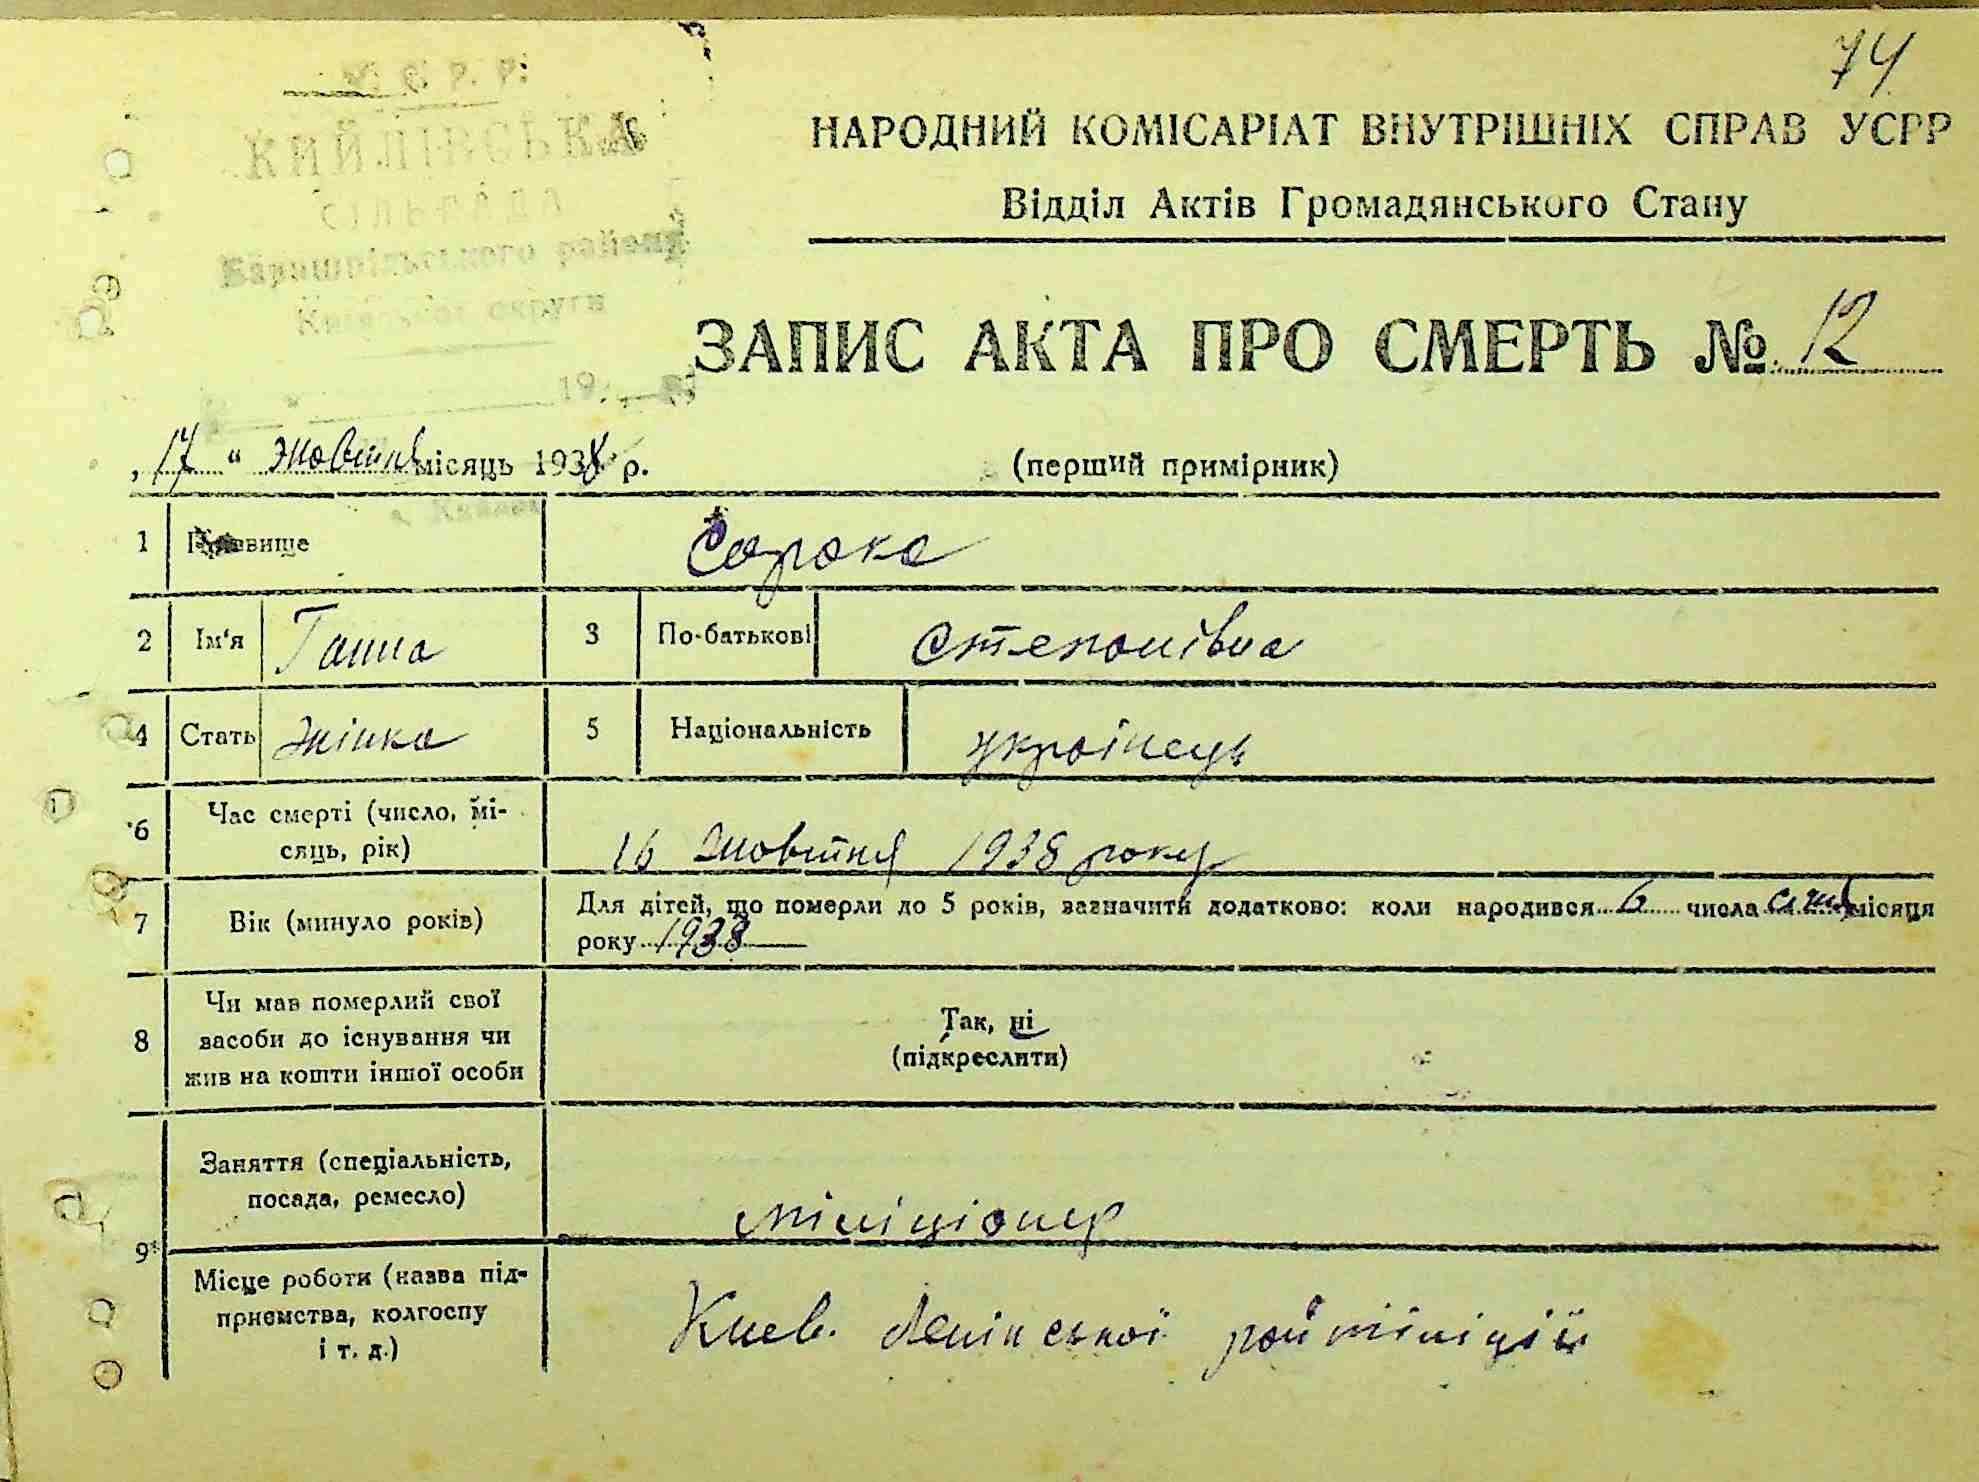 74
У. С. Р. Р.
КИЙЛІВСЬКА
СІЛЬРАДА
Баришпільського району
Київської округи
19
НАРОДНИЙ КОМІСАРІАТ ВНУТРІШНІХ СПРАВ УСРР
Відділ Актів Громадянського Стану
ЗАПИС АКТА ПРО СМЕРТЬ № 12
„17" жовтня місяць 1938 р.
(перший примірник)
1 Прізвище Сорока
2 Ім'я Ганна 3 По-батькові Степанівна
4 Стать жінка 5 Національність українець
6 Час смерті (число, мі-
сяць, рік) 16 жовтня 1938 року
7 Вік (минуло років) Для дітей, що померли до 5 років, зазначити додатково: коли народився 6 числа січня місяця
року 1938
8 Чи мав померлий свої
засоби до існування чи
жив на кошти іншої особи
Так, ні
(підкреслити)
9 Заняття (спеціальність,
посада, ремесло) міліціонер
Місце роботи (назва під-
приємства, колгоспу
і т. д.) Києв. Ленінської райміліції